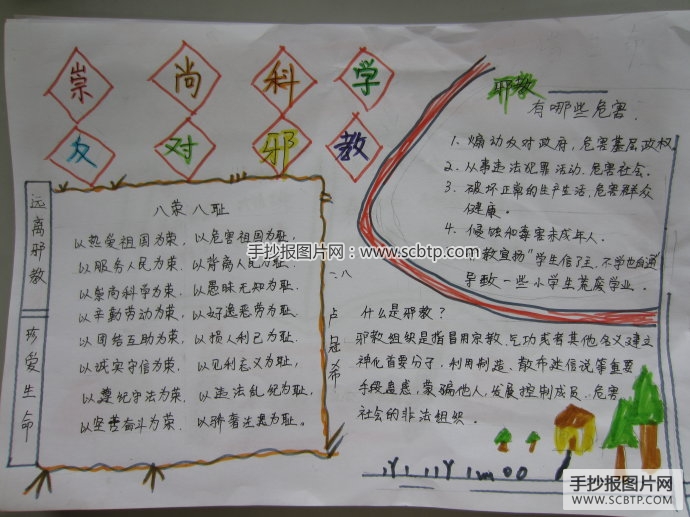 崇尚科学
友对邪教
远离邪教
珍爱生命
八荣八耻
以热爱祖国为荣、以危害祖国为耻、
以服务人民为荣、以背离人民为耻、
以崇尚科学为荣、以愚昧无知为耻、
以辛勤劳动为荣、以好逸恶劳为耻、
以团结互助为荣、以损人利己为耻、
以诚实守信为荣、以见利忘义为耻、
以遵纪守法为荣、以违法乱纪为耻、
以坚苦奋斗为荣、以骄奢注逸为耻。
二、八
卢冠希
邪教
有哪些危害
1、煽动反对政府、危害基层政权
2、从事违法犯罪活动、危害社会。
3、破坏正常的生产生活、危害群众
健康。
4、侵蚀和毒害未成年人。
教宣扬“学生信了主、不学也自通
导致一些小学生荒废学业。
什么是邪教?
邪教组织是指冒用宗教、气功或者其他名义建立
神化首要分子、利用制造、散布迷信说等重要
手段蛊惑、蒙骗他人、发展控制成员、危害
社会的非法组织。
手抄报图片网：www.scbtp.com
手抄报图片网
WWW.SCBTP.COM